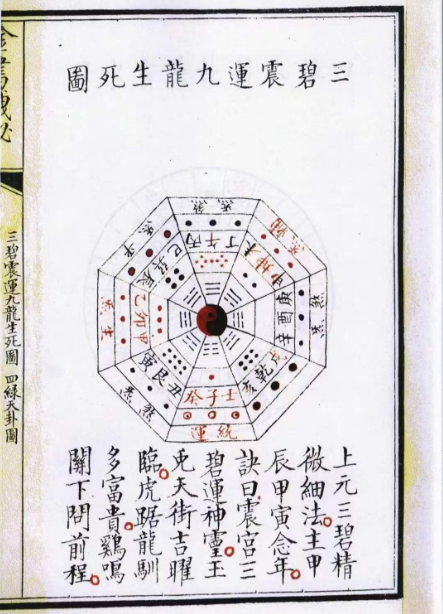 三碧震運九龍生死圖
丙午丁
未坤申
庚酉辛
戌乾亥
壬子癸
統運
丑艮寅
甲卯乙
辰巽巳
上元三碧精
微細法主甲
辰甲寅念年
訣曰震宮三
碧運神靈玉
兔天街吉曜
臨虎踞龍馴
多富貴鷄鳴
關下問前程
三碧震運九龍生死圖 四綠天卦圖